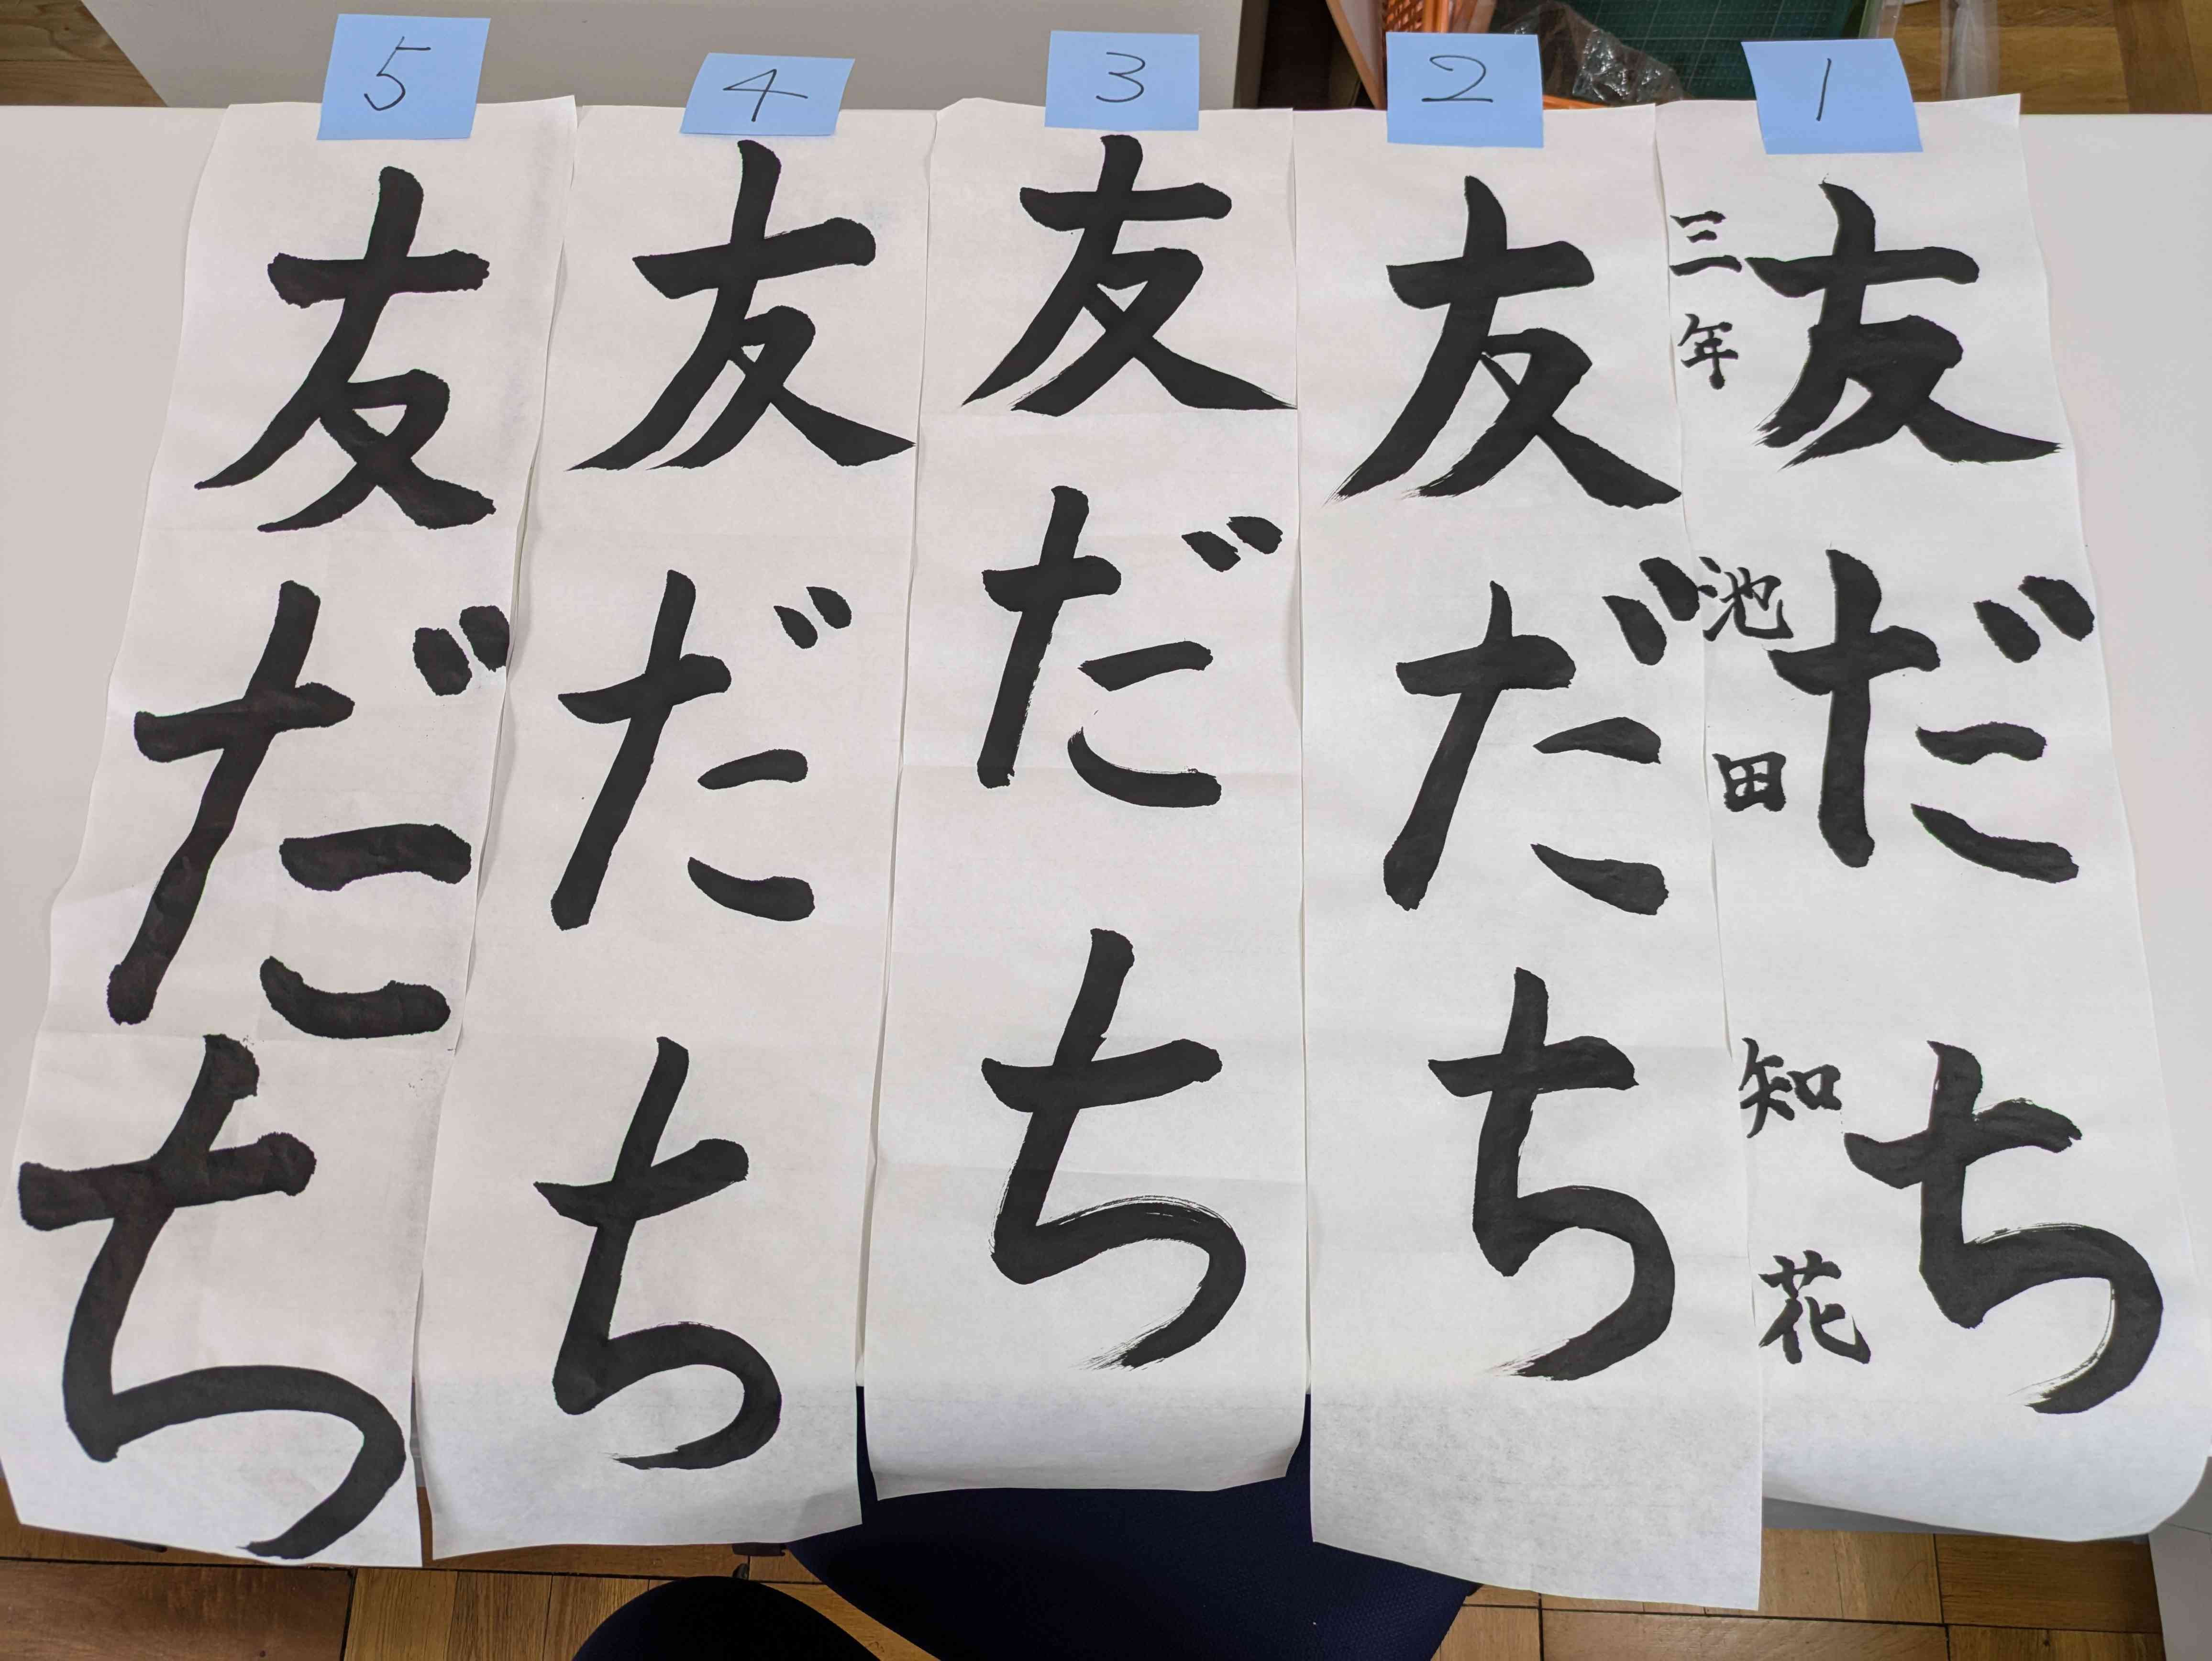 1
友だち
三年 池田 知花
2
友だち
3
友だち
4
友だち
5
友だち